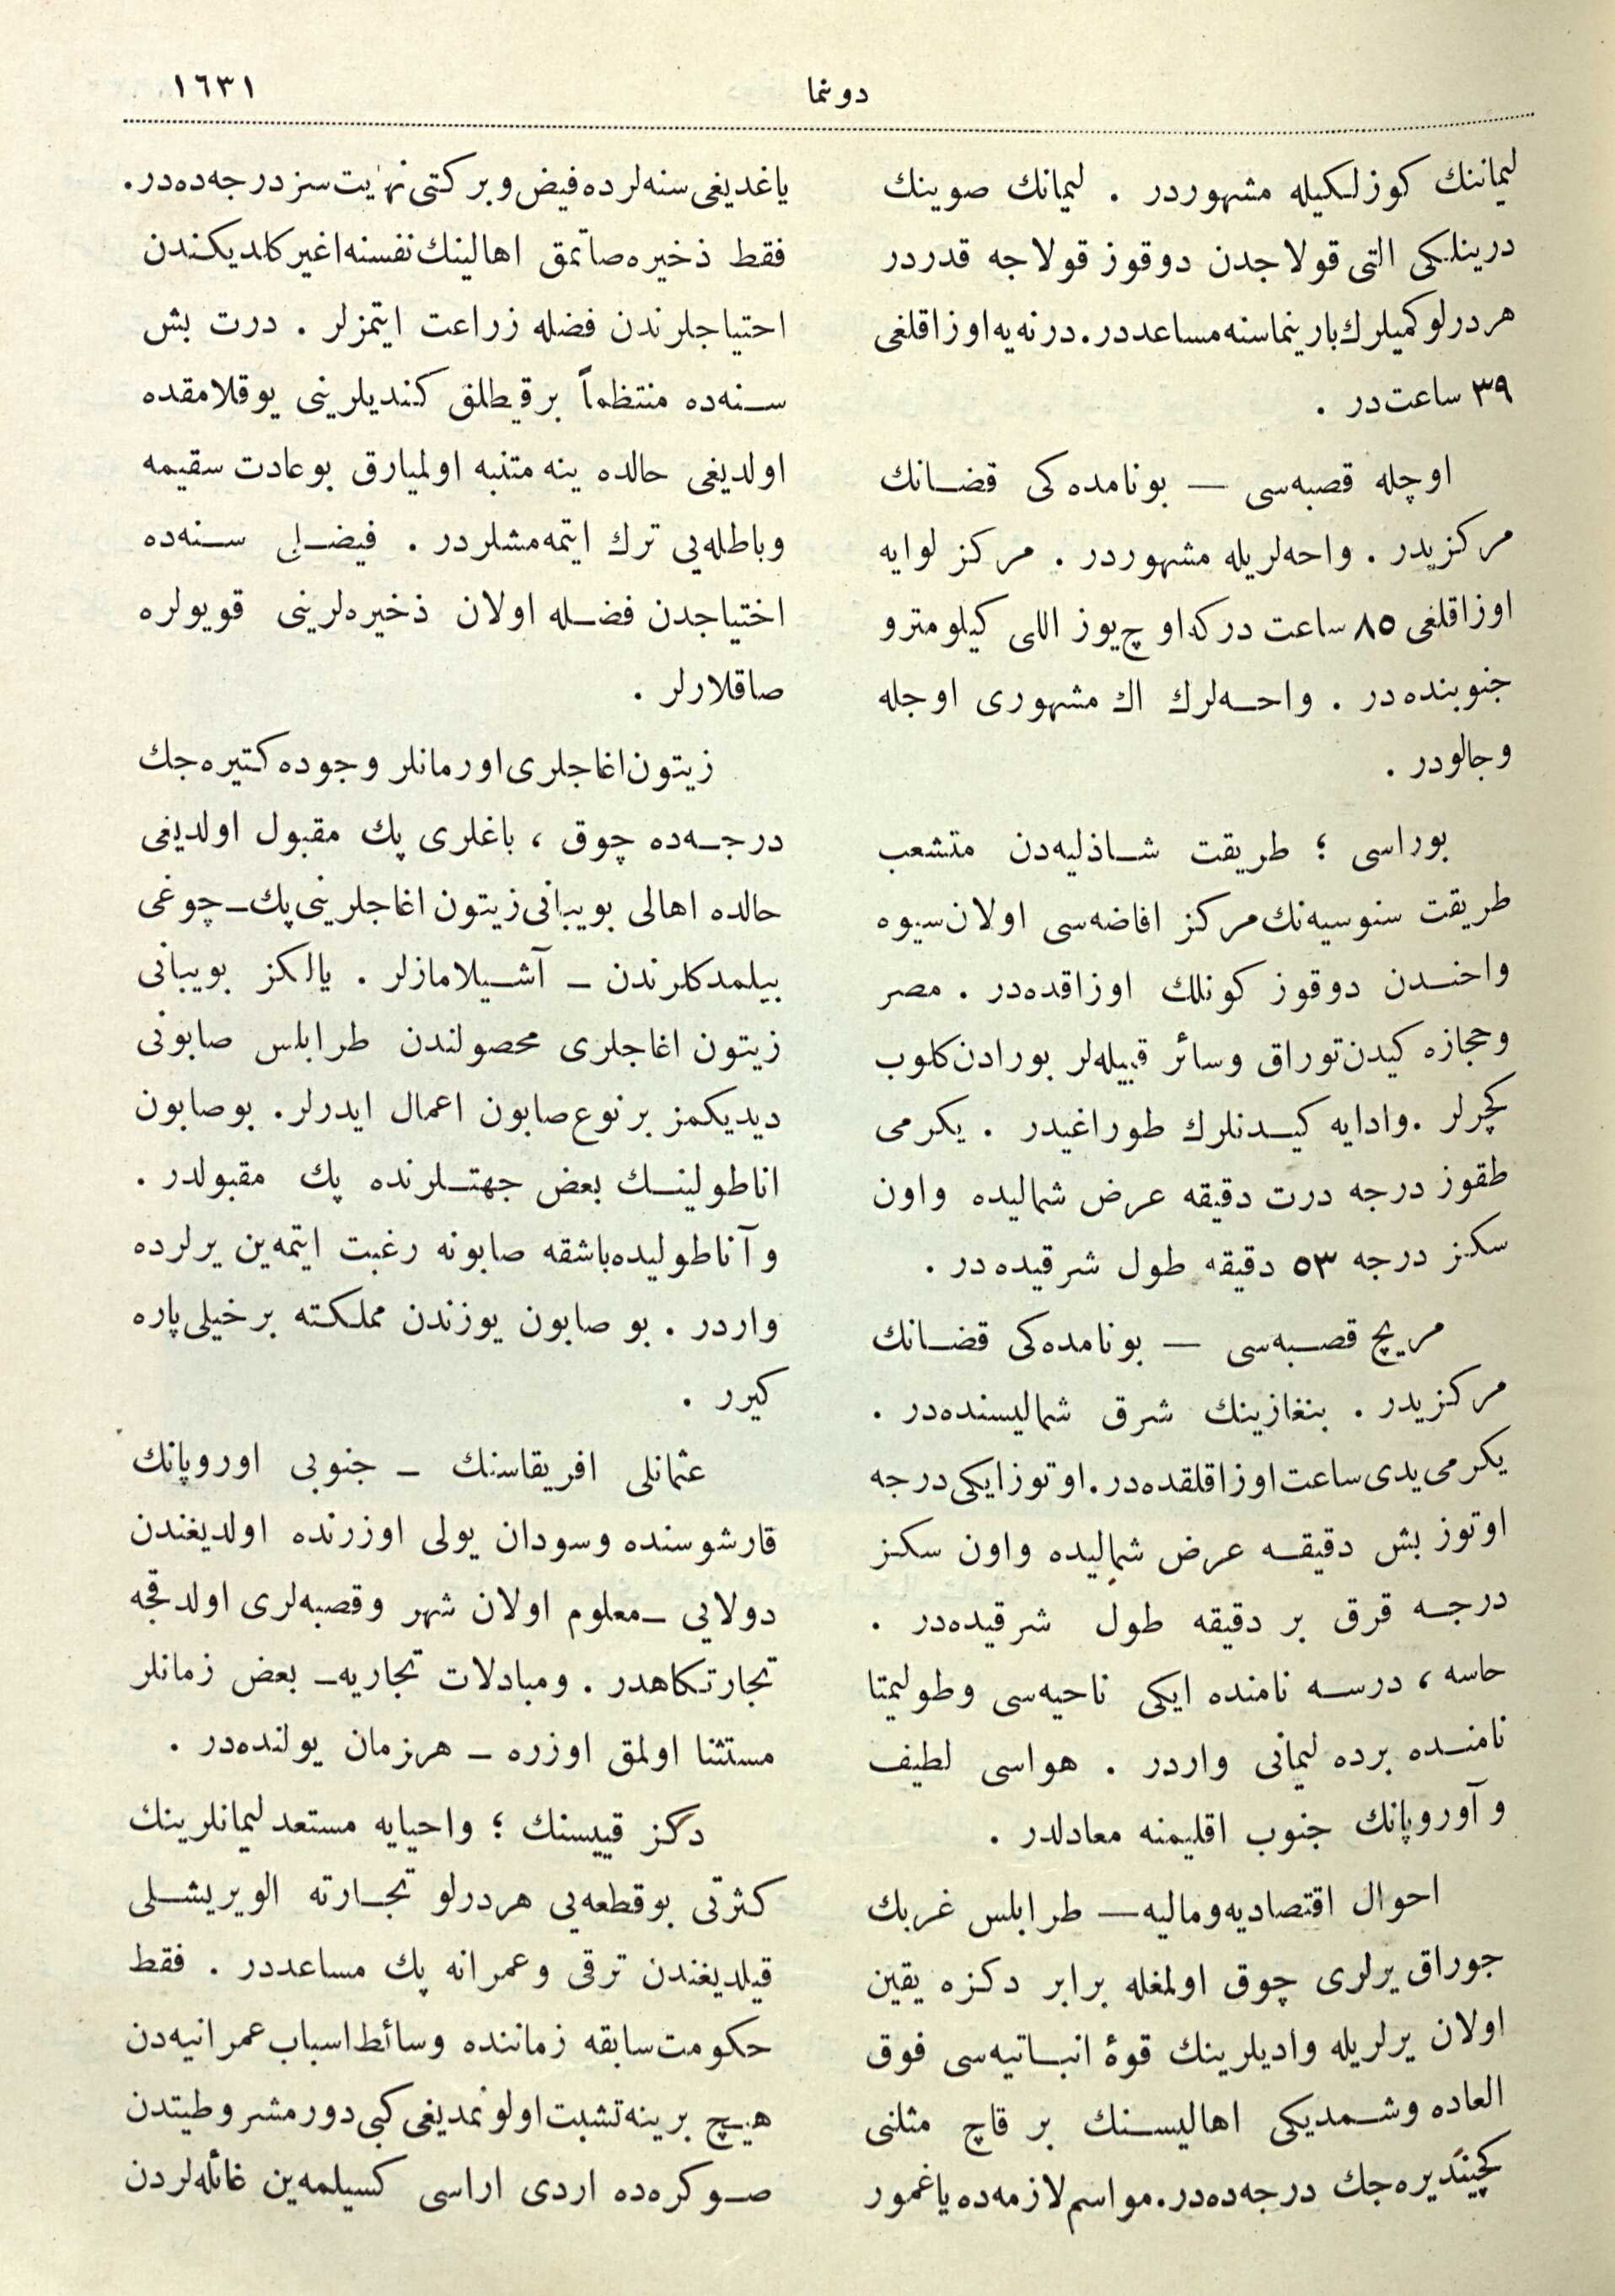 دوننما
١٦٣١
ليماننك كوزلكيله مشهوردر . ليمانك صوينك
درينلكى التى قولاجدن دوقوز قولاجه قدردر
هر درلو كميلرك بارينماسنه مساعددر. درنه‌يه اوزاقلغى
٣٩ ساعت‌در .
اوجله قصبه‌سى — بونامده كى قضانك
مركزيدر . واحه‌لريله مشهوردر . مركز لوايه
اوزاقلغى ٨٥ ساعت دركه اوچ‌يوز اللى كيلو مترو
جنوبنده‌در . واحه‌لرك اك مشهورى اوجله
وجالودر .
بوراسى ؛ طريقت شاذليه‌دن متشعب
طريقت سنوسيه‌نك مركز افاضه‌سى اولان سيوه
واحندن دوقوز كونلك اوزاقده‌در . مصر
وحجازه كيدن توراق وسائر قبيله‌لر بورادن كلوب
كچرلر . وادايه كيدنلرك طوراغيدر . يكرمى
طقوز درجه درت دقيقه عرض شماليده واون
سكز درجه ٥٣ دقيقه طول شرقيده در .
مريج قصبه‌سى — بونامده كى قضانك
مركزيدر . بنغازينك شرق شماليسنده‌در .
يكرمى يدى ساعت اوزاقلقده‌در. اوتوز ايكى درجه
اوتوز بش دقيقه عرض شماليده واون سكز
درجه قرق بر دقيقه طول شرقيده‌در .
حاسه ، درسه نامنده ايكى ناحيه‌سى وطوليمتا
نامنده برده ليمانى واردر . هواسى لطيف
وآوروپانك جنوب اقليمنه معادلدر .
احوال اقتصاديه وماليه — طرابلس غربك
جوراق يرلرى چوق اولمغله برابر دكزه يقين
اولان يرلريله واديلرينك قوۀ انباتيه‌سى فوق
العاده وشمديكى اهاليسنك بر قاچ مثلنى
كچينديره‌جك درجه‌ده‌در. مواسم لازمه‌ده ياغمور
ياغديغى سنه‌لرده فيض وبركتى نهايت‌سز درجه‌ده‌در.
فقط ذخيره صاتمق اهالينك نفسنه اغير كلديكندن
احتياجلرندن فضله زراعت ايتمزلر . درت بش
سنه‌ده منتظماً برقيطلق كنديلرينى يوقلامقده
اولديغى حالده ينه متنبه اولميارق بوعادت سقيمه
وباطله‌يى ترك ايتمه‌مشلردر . فيضلى سنه‌ده
اختياجدن فضله اولان ذخيره‌لرينى قويولره
صاقلارلر .
زيتون اغاجلرى اورمانلر وجوده كتيره‌جك
درجه‌ده چوق ، باغلرى پك مقبول اولديغى
حالده اهالى بويبانى زيتون اغاجلرينى پك ـ چوغى
بيلمدكلرندن ـ آشيلامازلر . يالكز بويبانى
زيتون اغاجلرى محصولندن طرابلس صابونى
ديديكمز برنوع صابون اعمال ايدرلر. بوصابون
اناطولينك بعض جهتلرنده پك مقبولدر .
وآناطوليده باشقه صابونه رغبت ايتمه‌ين يرلرده
واردر . بو صابون يوزندن مملكته برخيلى پاره
كيرر .
عثمانلى افريقاسنك ـ جنوبى اوروپانك
قارشوسنده وسودان يولى اوزرنده اولديغندن
دولايى ـ معلوم اولان شهر وقصبه‌لرى اولدقجه
تجارتكاهدر . ومبادلات تجاريه ـ بعض زمانلر
مستثنا اولمق اوزره ـ هرزمان يولنده‌در .
دكز قييسنك ؛ واحيايه مستعد ليمانلرينك
كثرتى بوقطعه‌يى هردرلو تجارته الويريشلى
قيلديغندن ترقى وعمرانه پك مساعددر . فقط
حكومت سابقه زماننده وسائط اسباب عمرانيه‌دن
هيچ برينه تشبت اولونمديغى كبى دور مشروطيتدن
صوكره‌ده اردى اراسى كسيلمه‌ين غائله‌لردن